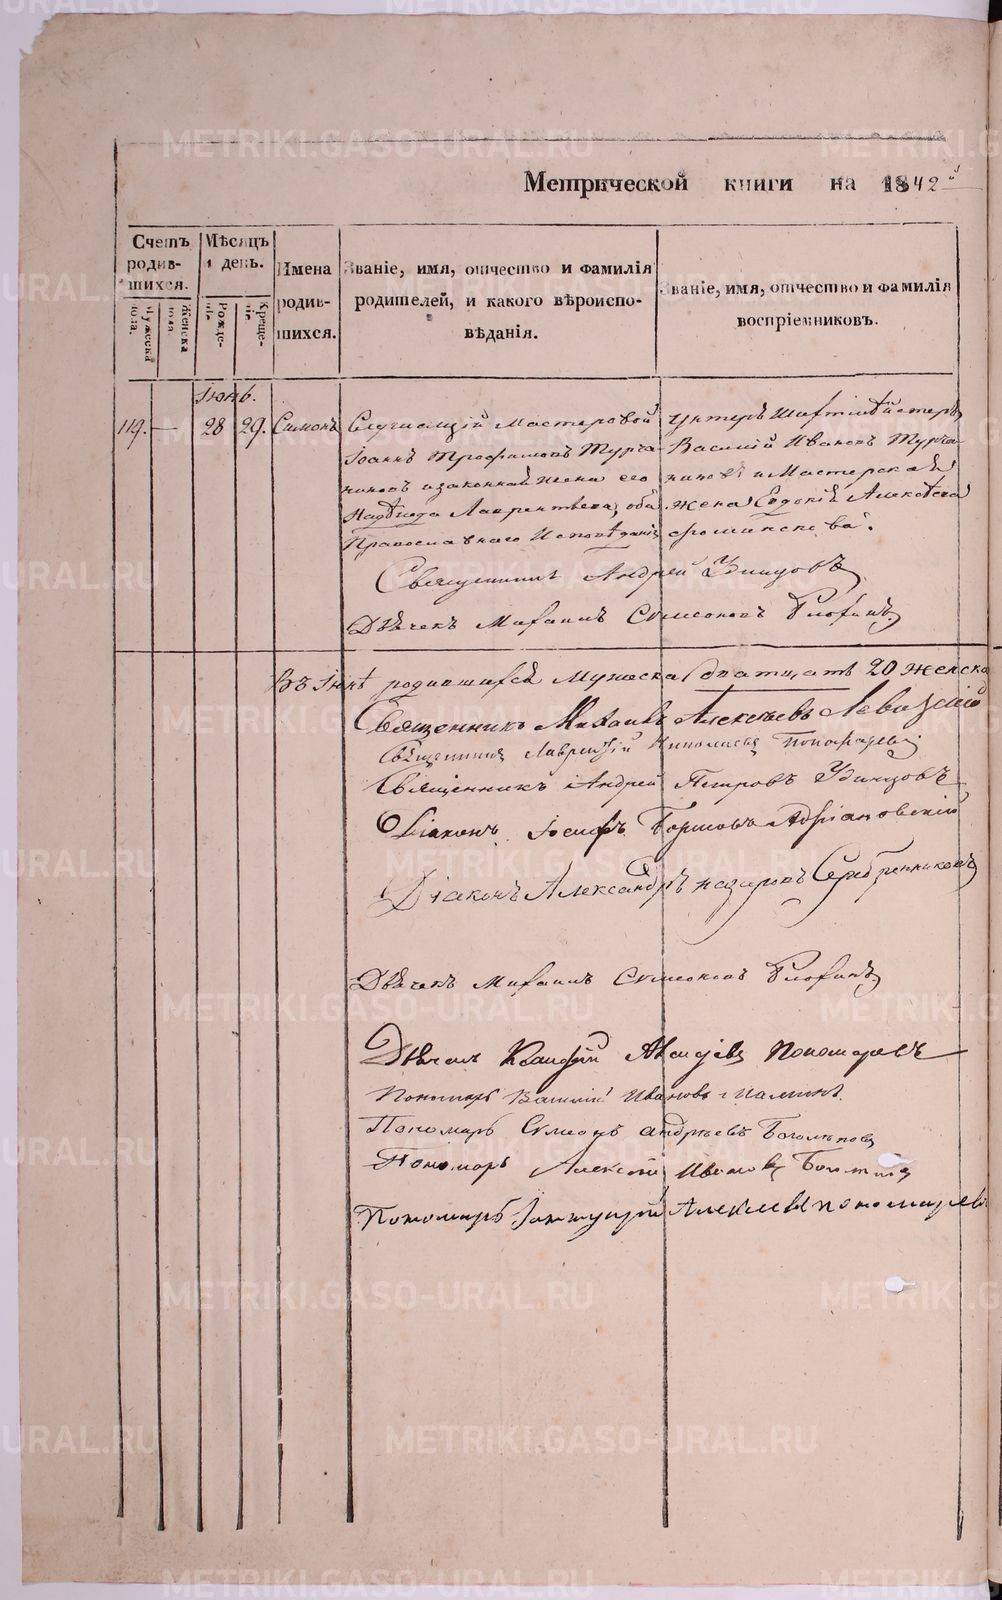 Метрической книги на 1842й
Счетъ родившихся.
Мѣсяцъ и день.
Имена родившихся.
Званіе, имя, отчество и фамилія родителей, и какого вѣроисповѣданія.
Званіе, имя, отчество и фамилія воспріемниковъ.
Мужеска пола.
Женска пола.
Рожденіе
Крещеніе
Іюнь.
119. — 28 29. Симонъ
Служащій Мастеровой
Іоаннъ Трофимовъ Турча-
ниновъ и законная жена его
Лаврентьева, оба
Православнаго Исповѣданія
Унтеръ Шихтмейстеръ
Василій Ивановъ Турча-
ниновъ и Мастерская
жена Евдокія Алексѣева
Священникъ Андрей Удинцовъ
Дьячекъ Михаилъ Симеоновъ
Въ Іюнѣ родившихся Мужеска дватцать 20 женска
Священникъ Михаилъ Алексѣевъ Левицкій
Священникъ Лаврентій Николаевъ Пономаревъ
Священникъ Андрей Петровъ Удинцовъ
Діаконъ Іосифъ Адріановскій
Діаконъ Александръ Назаровъ Серебренниковъ
Дьячекъ Михаилъ Симеоновъ
Дьячекъ Пономаревъ
Пономарь Василій Ивановъ
Пономарь Симеонъ Андреевъ Боголѣповъ
Пономарь Алексій Ивановъ
Пономарь Алексѣевъ Пономаревъ
METRIKI.GASO-URAL.RU